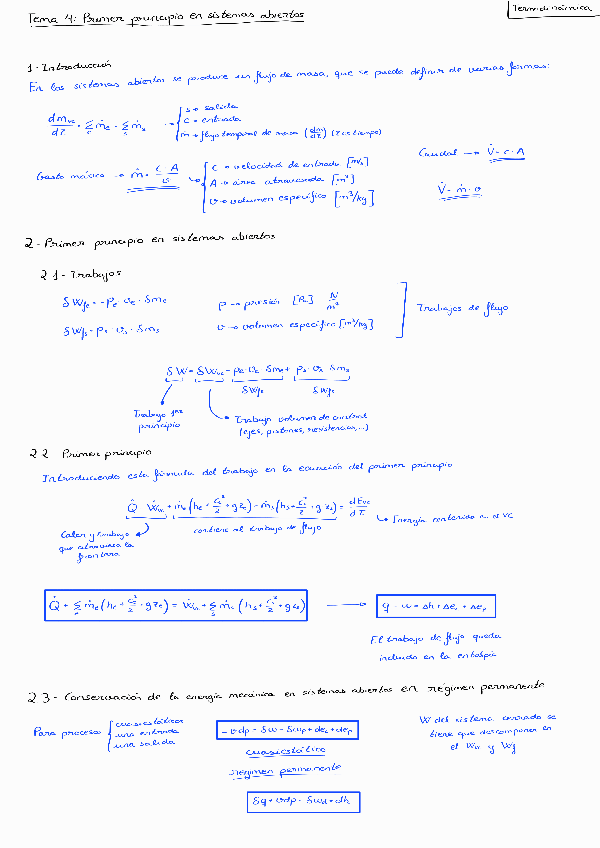 Tema 4: Primer principio en sistemas abiertos
Termodinámica
1- Introducción
En los sistemas abiertos se produce un flujo de masa, que se puede definir de varias formas:
dm_vc/dτ = Σ_e ṁ_e - Σ_s ṁ_s → { s → salida
e → entrada
ṁ → flujo temporal de masa (dm/dτ) (τ es tiempo)
Gasto másico → ṁ = c·A/v → { c → velocidad de entrada [m/s]
A → área atravesada [m²]
v → volumen específico [m³/kg]
Caudal → V̇ = c·A
V̇ = ṁ·v
2- Primer principio en sistemas abiertos
2.1- Trabajos
δW_fe = -p_e · v_e · δm_e
p → presión [Pa] N/m²
δW_fs = p_s · v_s · δm_s
v → volumen específico [m³/kg]
Trabajos de flujo
δW = δW_vc - p_e·v_e·δm_e + p_s·v_s·δm_s
δW_fe
δW_fs
Trabajo 1er principio
Trabajo volumen de control
(ejes, pistones, resistencias,...)
2.2 Primer principio
Introduciendo esta fórmula del trabajo en la ecuación del primer principio
Q̇ - Ẇ_vc + ṁ_e(h_e + c_e²/2 + gz_e) - ṁ_s(h_s + c_s²/2 + gz_s) = dE_vc/dτ
Energía contenida en el VC
Calor y trabajo
que atraviesa la
frontera
contiene el trabajo de flujo
Q̇ + Σ_e ṁ_e(h_e + c_e²/2 + gz_e) = Ẇ_vc + Σ_s ṁ_s(h_s + c_s²/2 + gz_s) → q - w = Δh + Δe_c + Δe_p
El trabajo de flujo queda
incluido en la entalpía
2.3- Conservación de la energía mecánica en sistemas abiertos en régimen permanente
Para procesos { cuasiestáticos
una entrada
una salida
-vdp = δw - δw_p + de_c + de_p
cuasiestático
régimen permanente
δq + vdp - δw_d = dh
W del sistema cerrado se
tiene que descomponer en
el W_vc y W_f